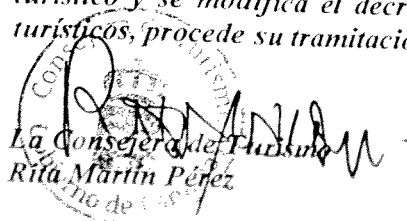 turístico y se modifica el decr
turísticos, procede su tramitació
La Consejera de Turismo
Rita Martín Pérez